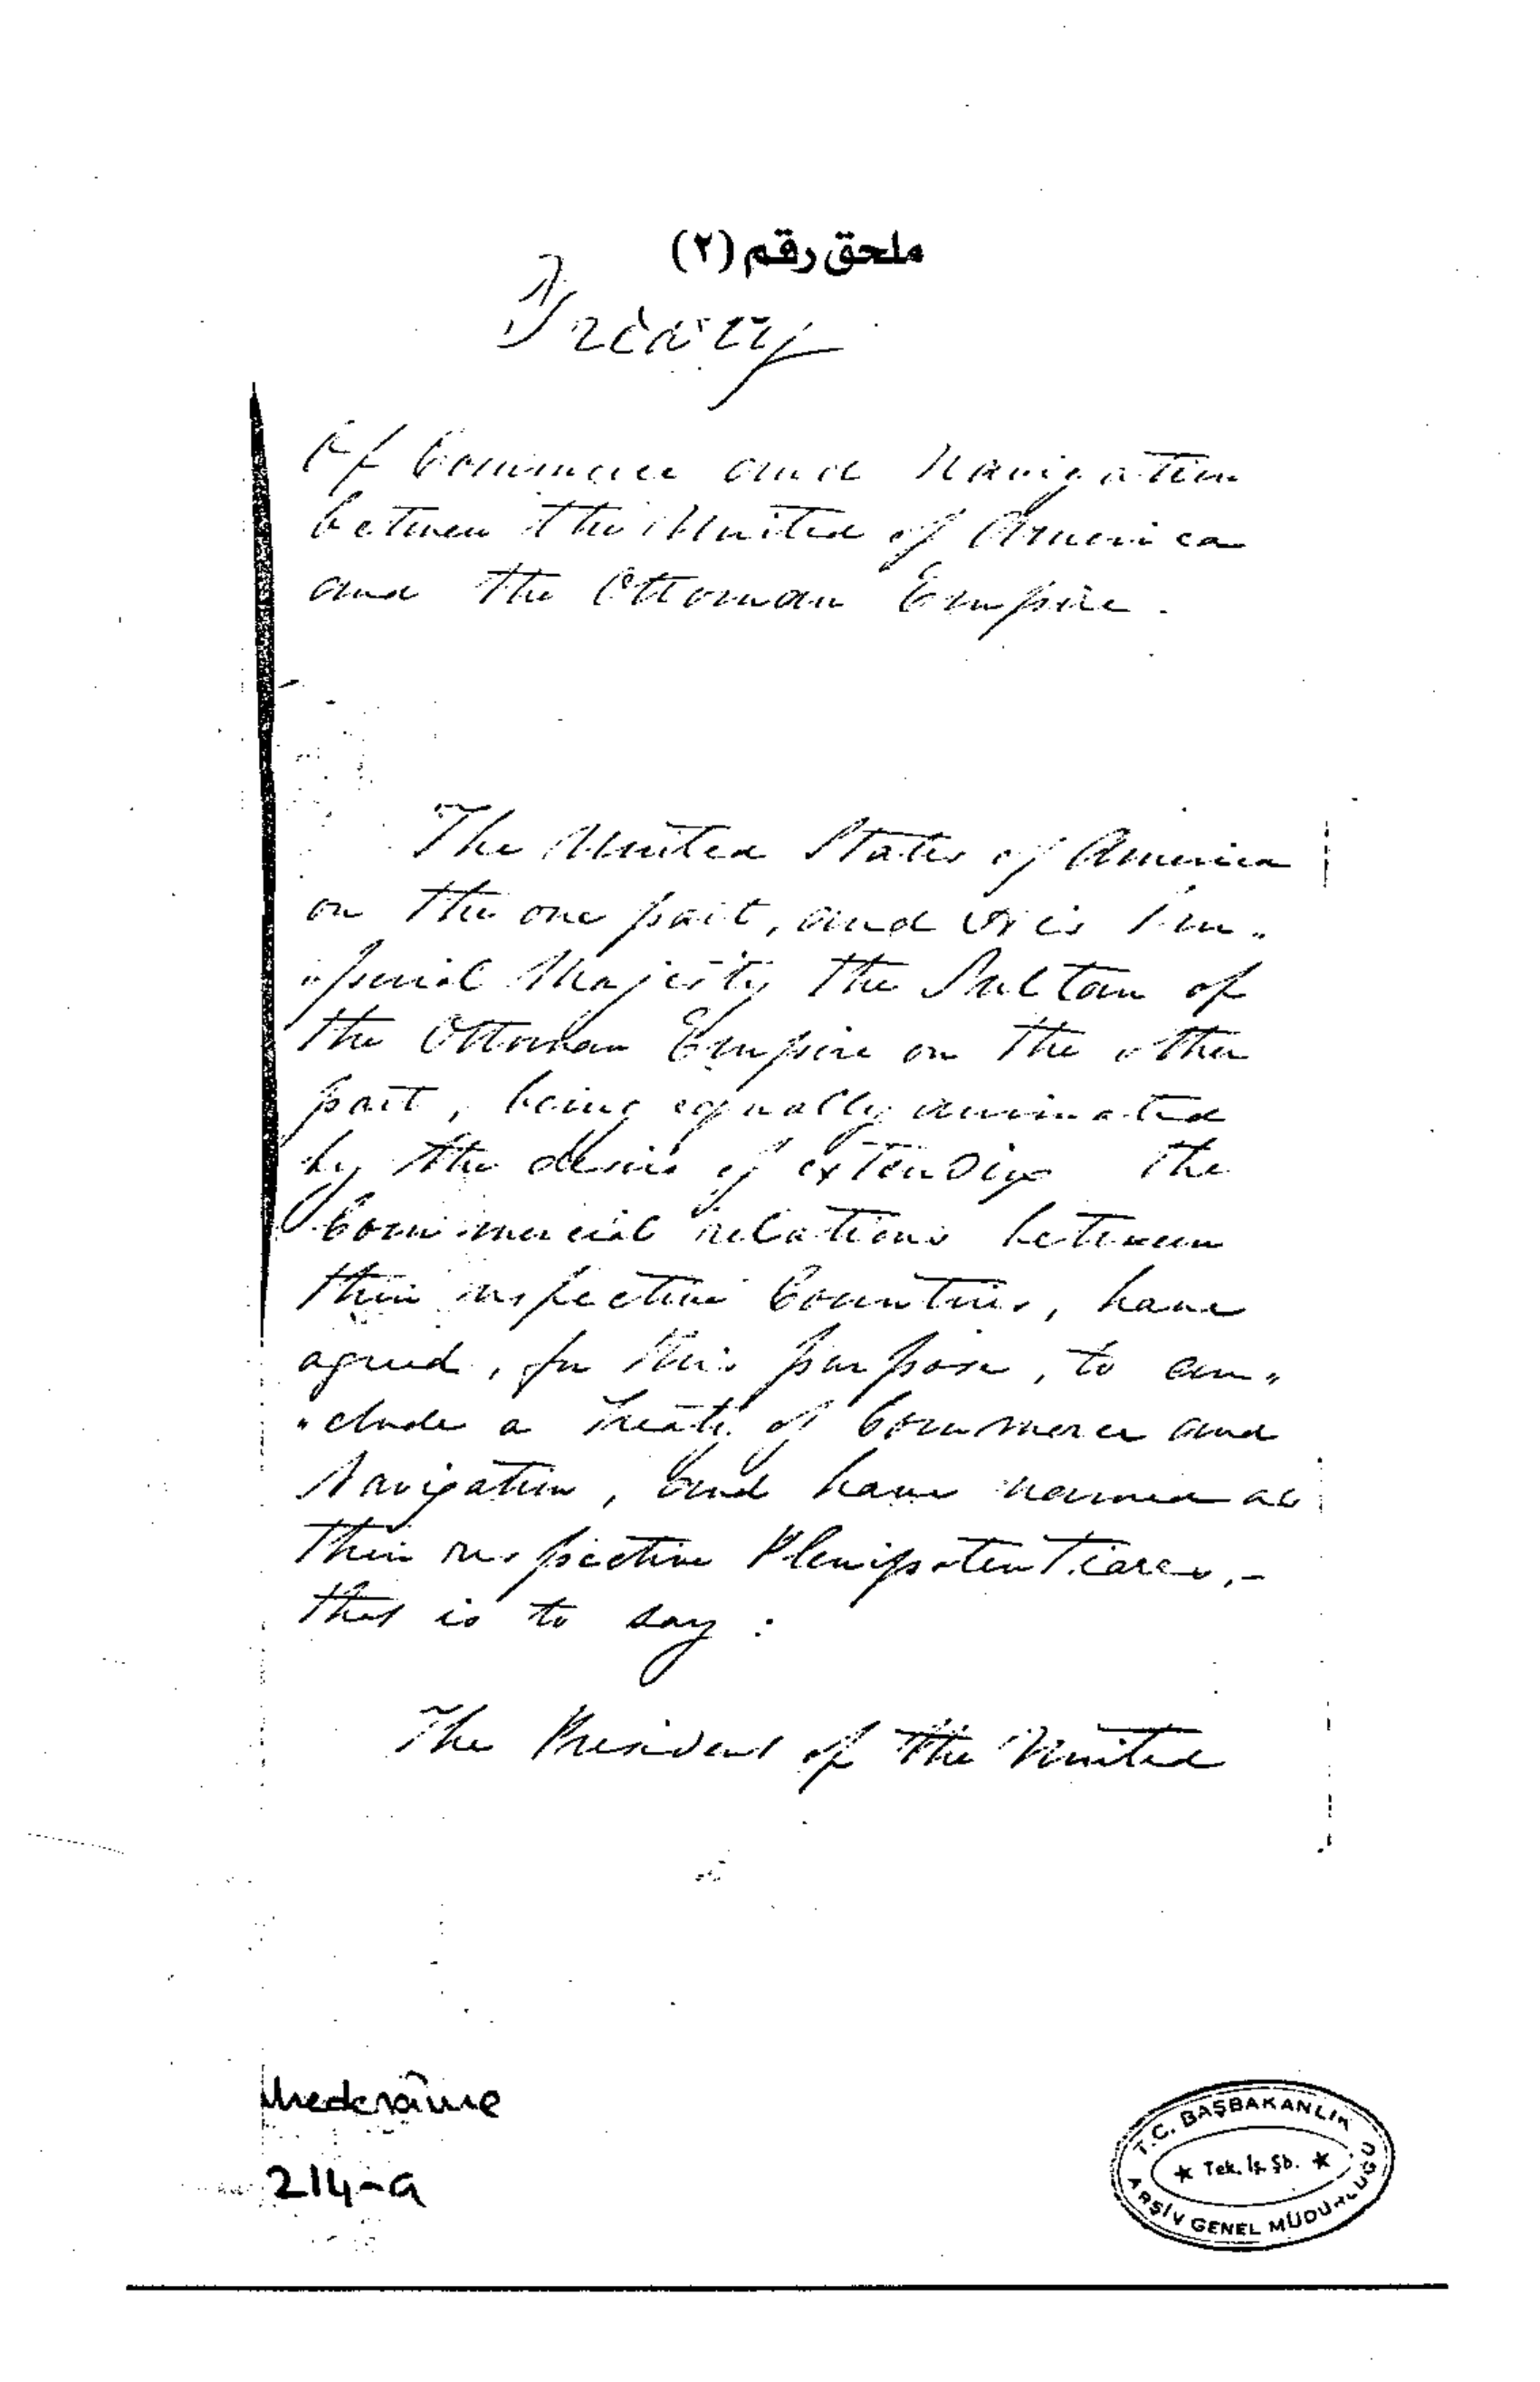 ملحق رقم (٢)
Treaty
Of Commerce and Navigation
between the United of America
and the Ottoman Empire.
The United States of America
on the one part, and His Im„
„perial Majesty the Sultan of
the Ottoman Empire on the other
part, being equally animated
by the desire of extending the
Commercial relations between
their respective Countries, have
agreed, for this purpose, to con„
„clude a Treaty of Commerce and
Navigation, and have named as
their respective Plenipotentiaries,-
that is to say:
The President of the United
214-a
T.C. BAŞBAKANLIK
★ Tek. İş. Şb. ★
ARŞİV GENEL MÜDÜRLÜĞÜ